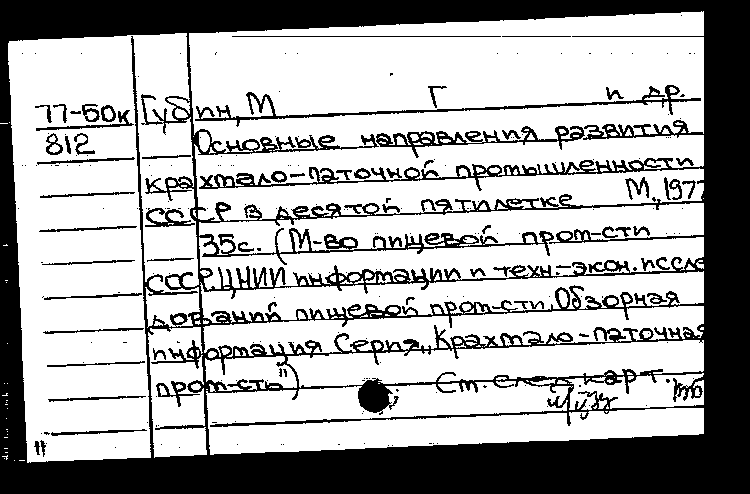 77-50к Губин, М Г и др.
812 Основные направления развития
крахмало-паточной промышленности
СССР в десятой пятилетке М., 1977
35с. (М-во пищевой пром-сти
СССР. ЦНИИ информации и техн.-экон. иссле
дований пищевой пром-сти. Обзорная
информация Серия „Крахмало-паточная
пром-сть")
См. след. карт.